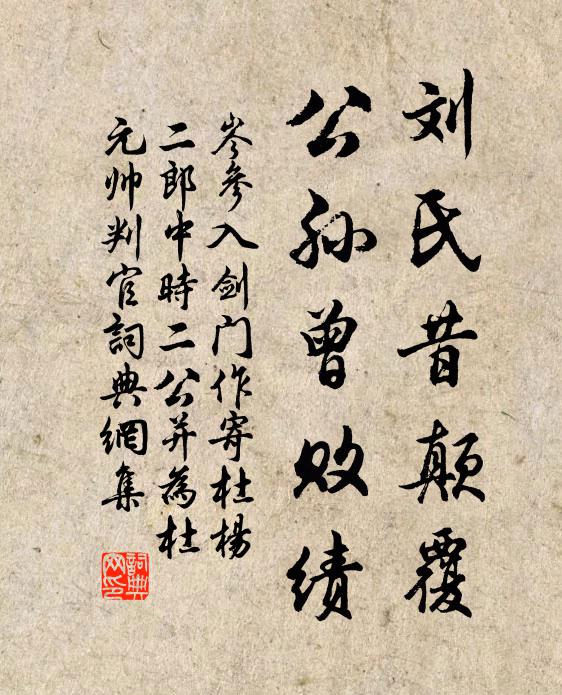 刘氏昔颠覆
公孙曾败绩
岑参入剑门作寄杜杨
二郎中時二公并為杜
元帅判官詞典網集
詞典
网印